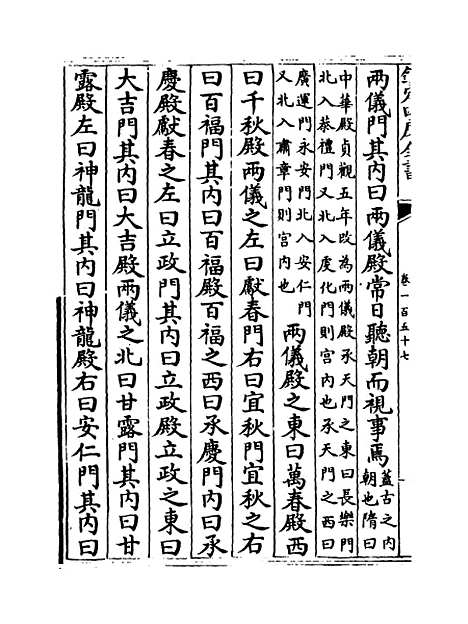 欽定四庫全書
卷一百五十七
兩儀門其内曰兩儀殿常日聽朝而視事焉
蓋古之内
朝也隋曰
中華殿貞觀五年改為兩儀殿承天門之東曰長樂門
北入恭禮門又北入虔化門則宫内也承天門之西曰
廣運門永安門北入安仁門
又北入肅章門則宫内也
兩儀殿之東曰萬春殿西
曰千秋殿兩儀之左曰獻春門右曰宜秋門宜秋之右
曰百福門其内曰百福殿百福之西曰承慶門内曰承
慶殿獻春之左曰立政門其内曰立政殿立政之東曰
大吉門其内曰大吉殿兩儀之北曰甘露門其内曰甘
露殿左曰神龍門其内曰神龍殿右曰安仁門其内曰